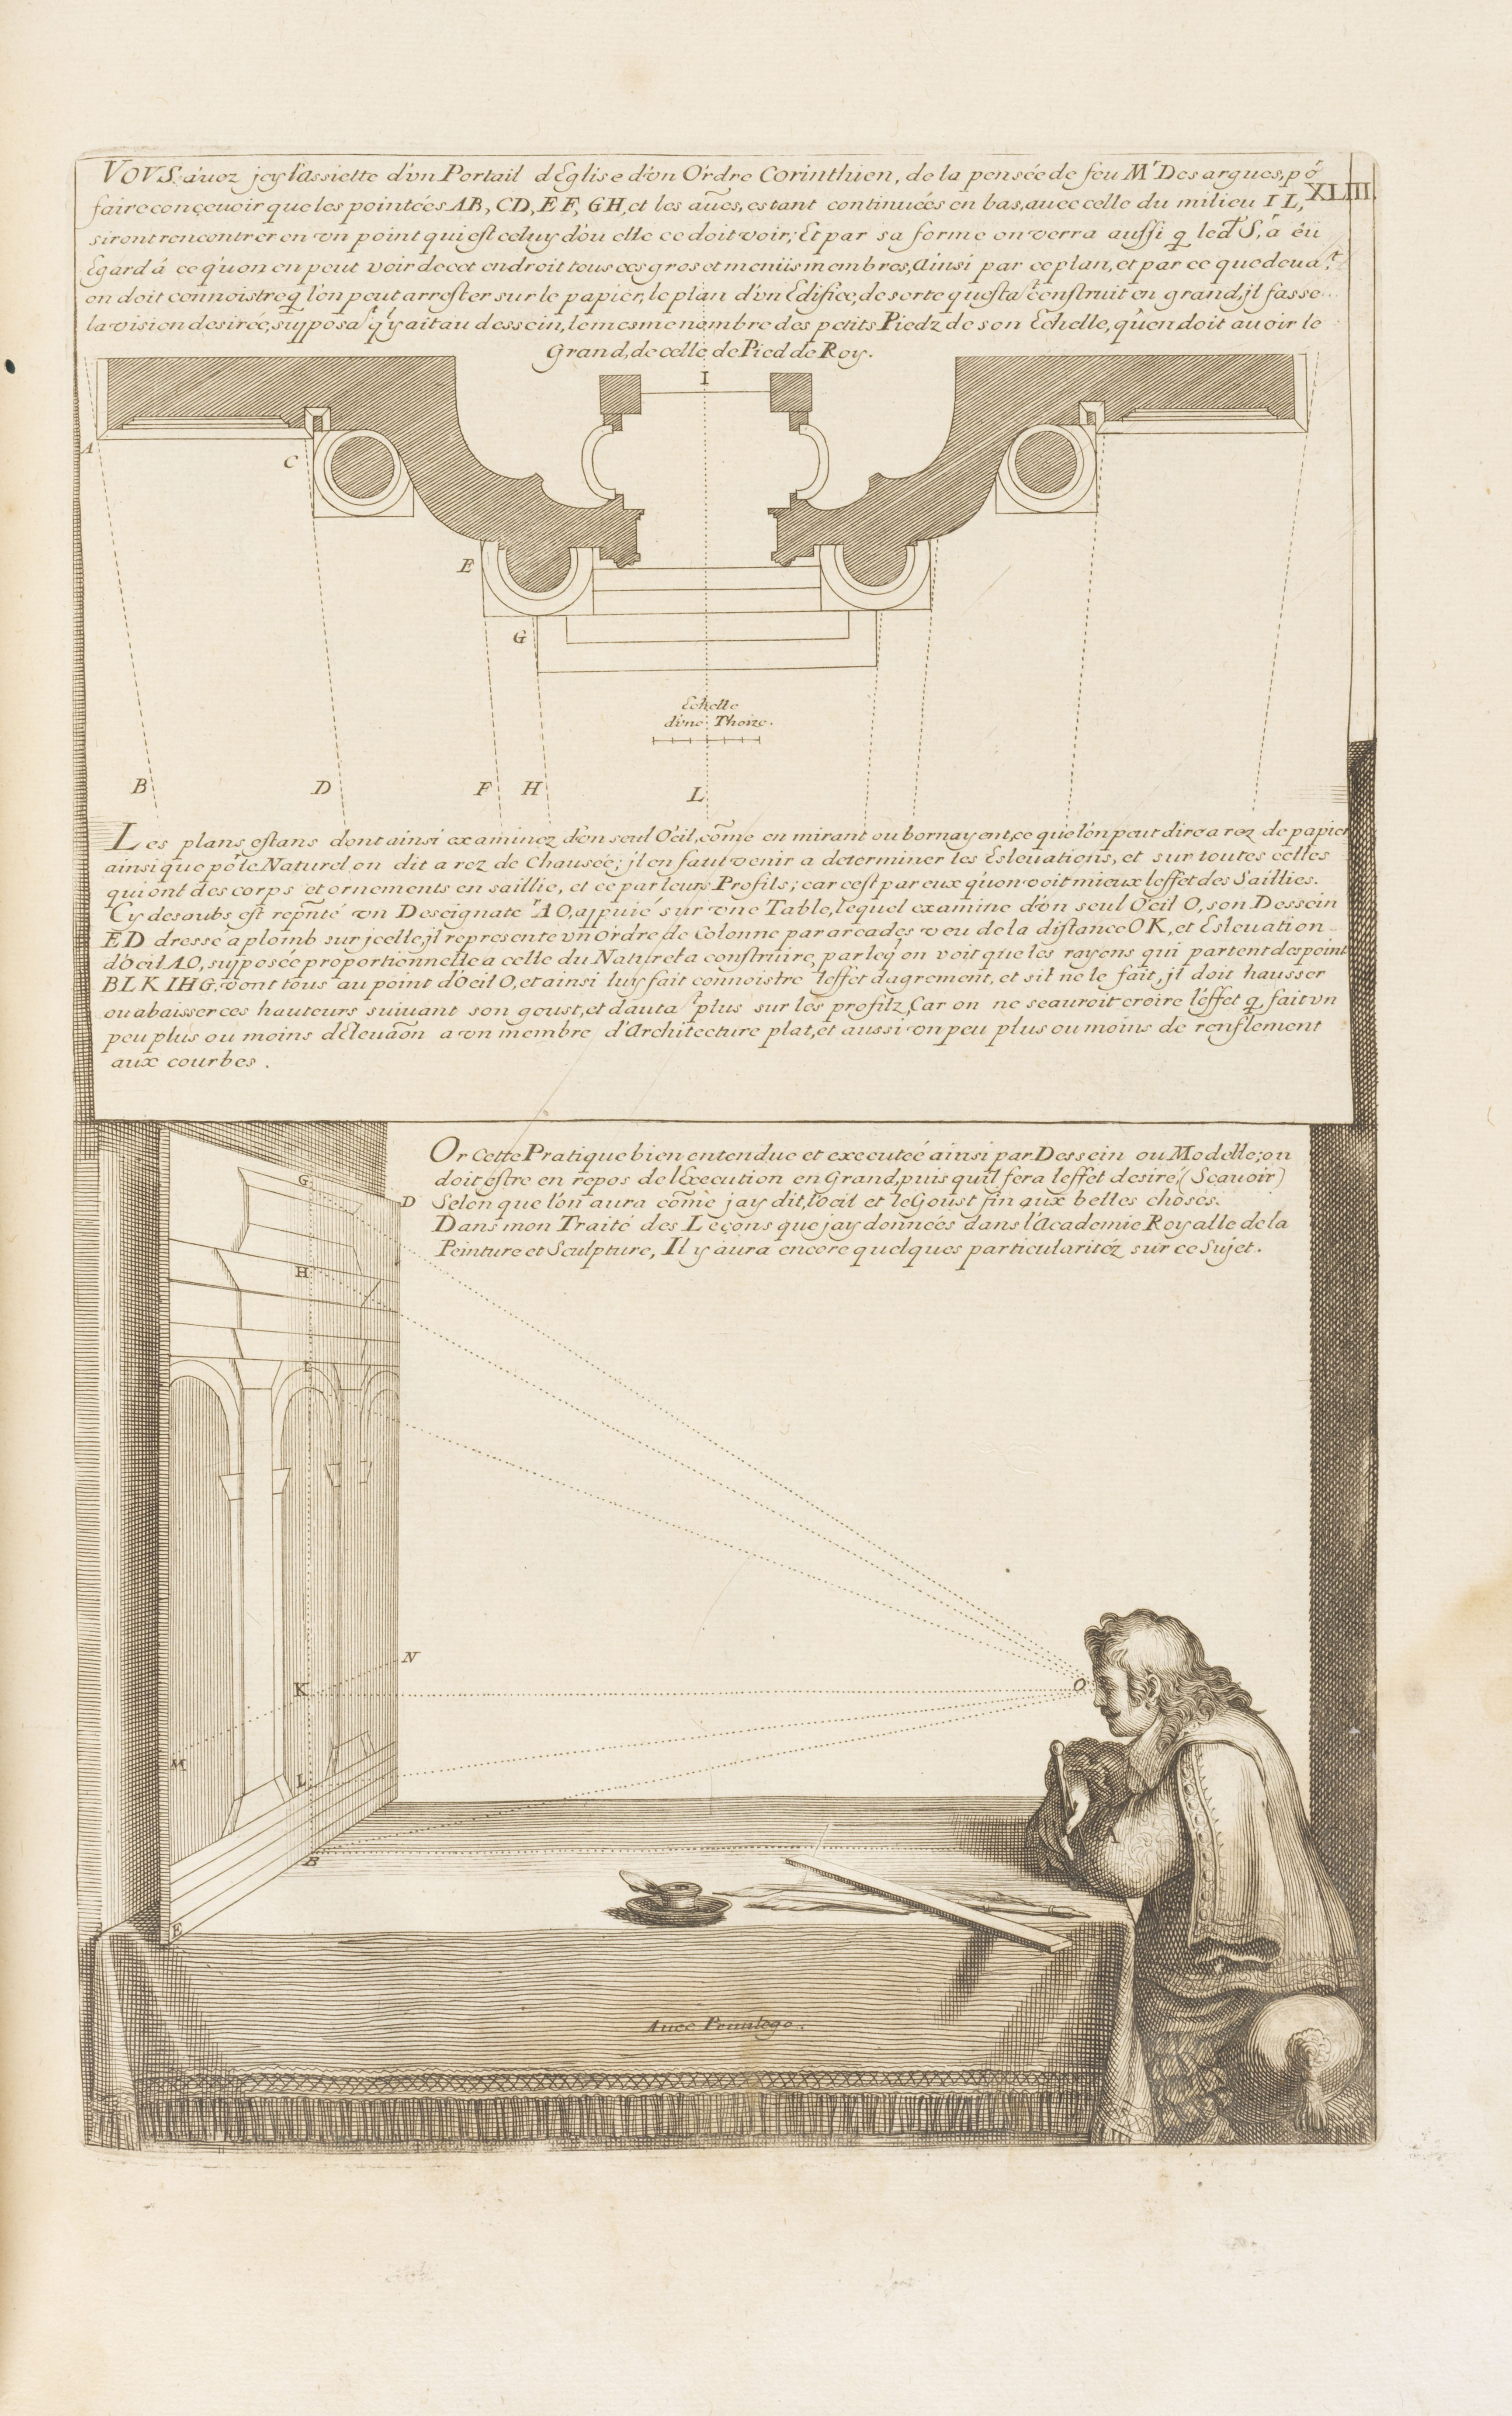 VOVS. auez jcy lassiette d'vn Portail d'Eglise d'vn Ordre Corinthien, de la pensée de feu Mr Desargues, pő
XLIII.
faire conçeuoir que les pointées AB, CD, EF, GH, et les aũes, estant continuées en bas, auec celle du milieu IL,
siront rencontrer en vn point qui est celuy d'òu elle ce doit voir; Et par sa forme on verra aussi q̃ led.t S.r à éu
Egard á ce qu'on en peut voir de cet endroit tous ces gros et menüs membres, Ainsi par ce plan, et par ce que deua.t
on doit connoistre q̃ lon peut arrester sur le papier, le plan d'vn Edifice, de sorte questat construit en grand, jl fasse
la vision desirée, supposa.t q'l y ait au dessein, le mesme nombre des petits Piedz de son Echelle, qu'en doit auoir le
Grand, de celle de Pied de Roy.
I
A
C
E
G
Echelle
d'vne Thoize.
B
D
F
H
L
Les plans estans dont ainsi examinez d'vn seul Oeil, cõme en mirant ou bornayent, ce que lon peut dire a rez de papier
ainsi que pő le Naturel on dit a rez de Chausée; jl en faut venir a determiner les Esleuations, et sur toutes celles
qui ont des corps et ornements en saillie, et ce par leurs Profils; car cest par eux qu'on voit mieux leffet des Saillies.
Cy desoubs est repñté vn Deseignate.r AO, appuié sur vne Table, lequel examine d'vn seul Oeil O, son Dessein
ED dressé a plomb sur jcelle, jl represente vn Ordre de Colonne par arcades veu de la distance OK, et Esleuation
d'oeil AO, supposée proportionnelle a celle du Naturel a construire, par leq'l on voit que les rayons qui partent des point
BLKIHG, vont tous au point d'Oeil O, et ainsi luy fait connoistre leffet dagrement, et sil ne le fait, jl doit hausser
ou abaisser ces hauteurs suiuant son goust, et dauta.t plus sur les profilz, Car on ne sçauroit croire l'effet q̃ fait vn
peu plus ou moins d'Eleuaõn a vn membre d'Architecture plat, et aussi vn peu plus ou moins de renflement
aux courbes.
Or Cette Pratique bien entendue et executeé ainsi par Dessein ou Modelle; on
doit estre en repos de l'Execution en Grand, puis quil fera leffet desiré, (Sçauoir)
Selon que lon aura cõme jay dit, l'oeil et le Goust fin aux belles choses.
Dans mon Traité des Leçons que jay données dans l'Academie Royalle de la
Peinture et Sculpture, Il y aura encore quelques particularitéz sur ce Sujet.
G
D
H
I
N
K
O
M
L
A
B
E
Auec Priuilege.